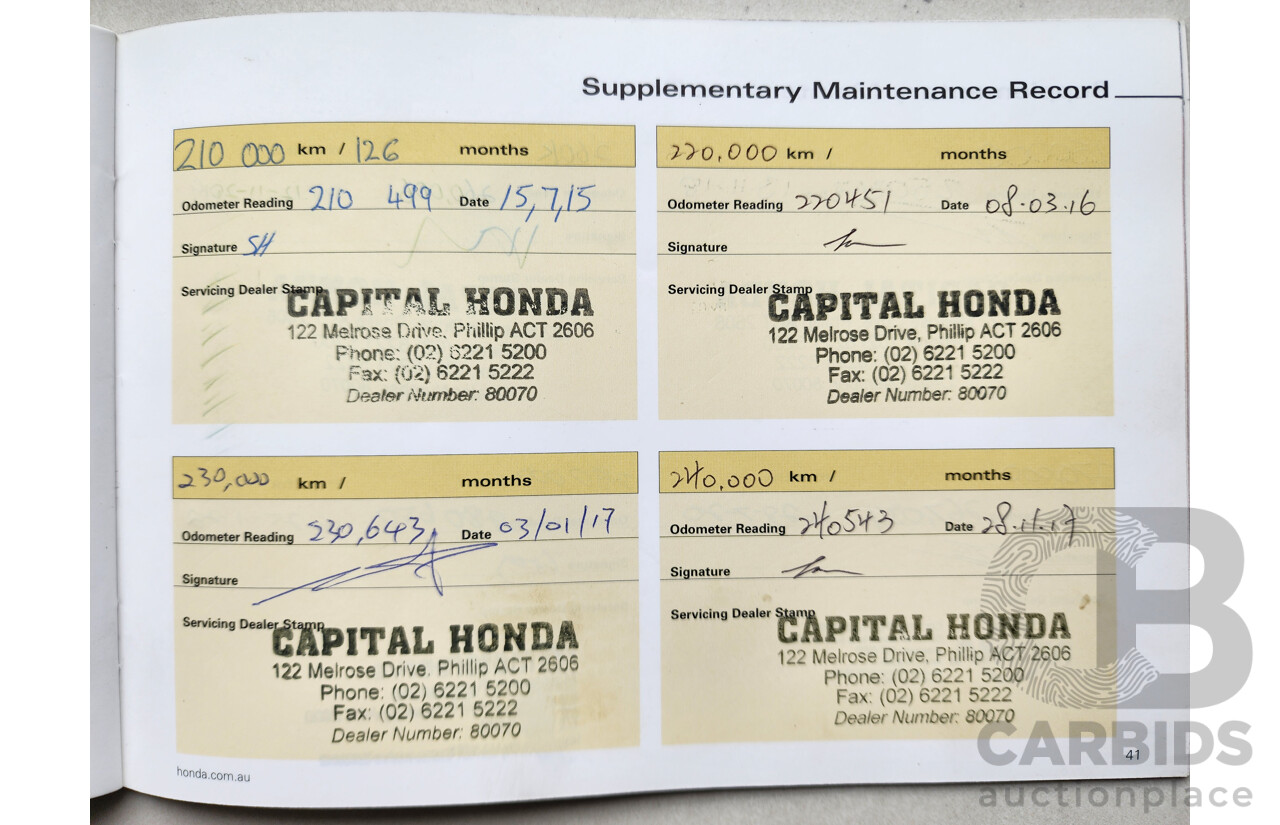 Supplementary Maintenance Record
210 000 km / 126 months
Odometer Reading 210 499 Date 15,7,15
Signature SH
Servicing Dealer Stamp
CAPITAL HONDA
122 Melrose Drive, Phillip ACT 2606
Phone: (02) 6221 5200
Fax: (02) 6221 5222
Dealer Number: 80070
220,000 km / months
Odometer Reading 220451 Date 08.03.16
Signature
Servicing Dealer Stamp
CAPITAL HONDA
122 Melrose Drive, Phillip ACT 2606
Phone: (02) 6221 5200
Fax: (02) 6221 5222
Dealer Number: 80070
230,000 km / months
Odometer Reading 230,643 Date 03/01/17
Signature
Servicing Dealer Stamp
CAPITAL HONDA
122 Melrose Drive, Phillip ACT 2606
Phone: (02) 6221 5200
Fax: (02) 6221 5222
Dealer Number: 80070
240,000 km / months
Odometer Reading 240543 Date 28.11.17
Signature
Servicing Dealer Stamp
CAPITAL HONDA
122 Melrose Drive, Phillip ACT 2606
Phone: (02) 6221 5200
Fax: (02) 6221 5222
Dealer Number: 80070
honda.com.au
41
CB
CARBIDS
auctionplace